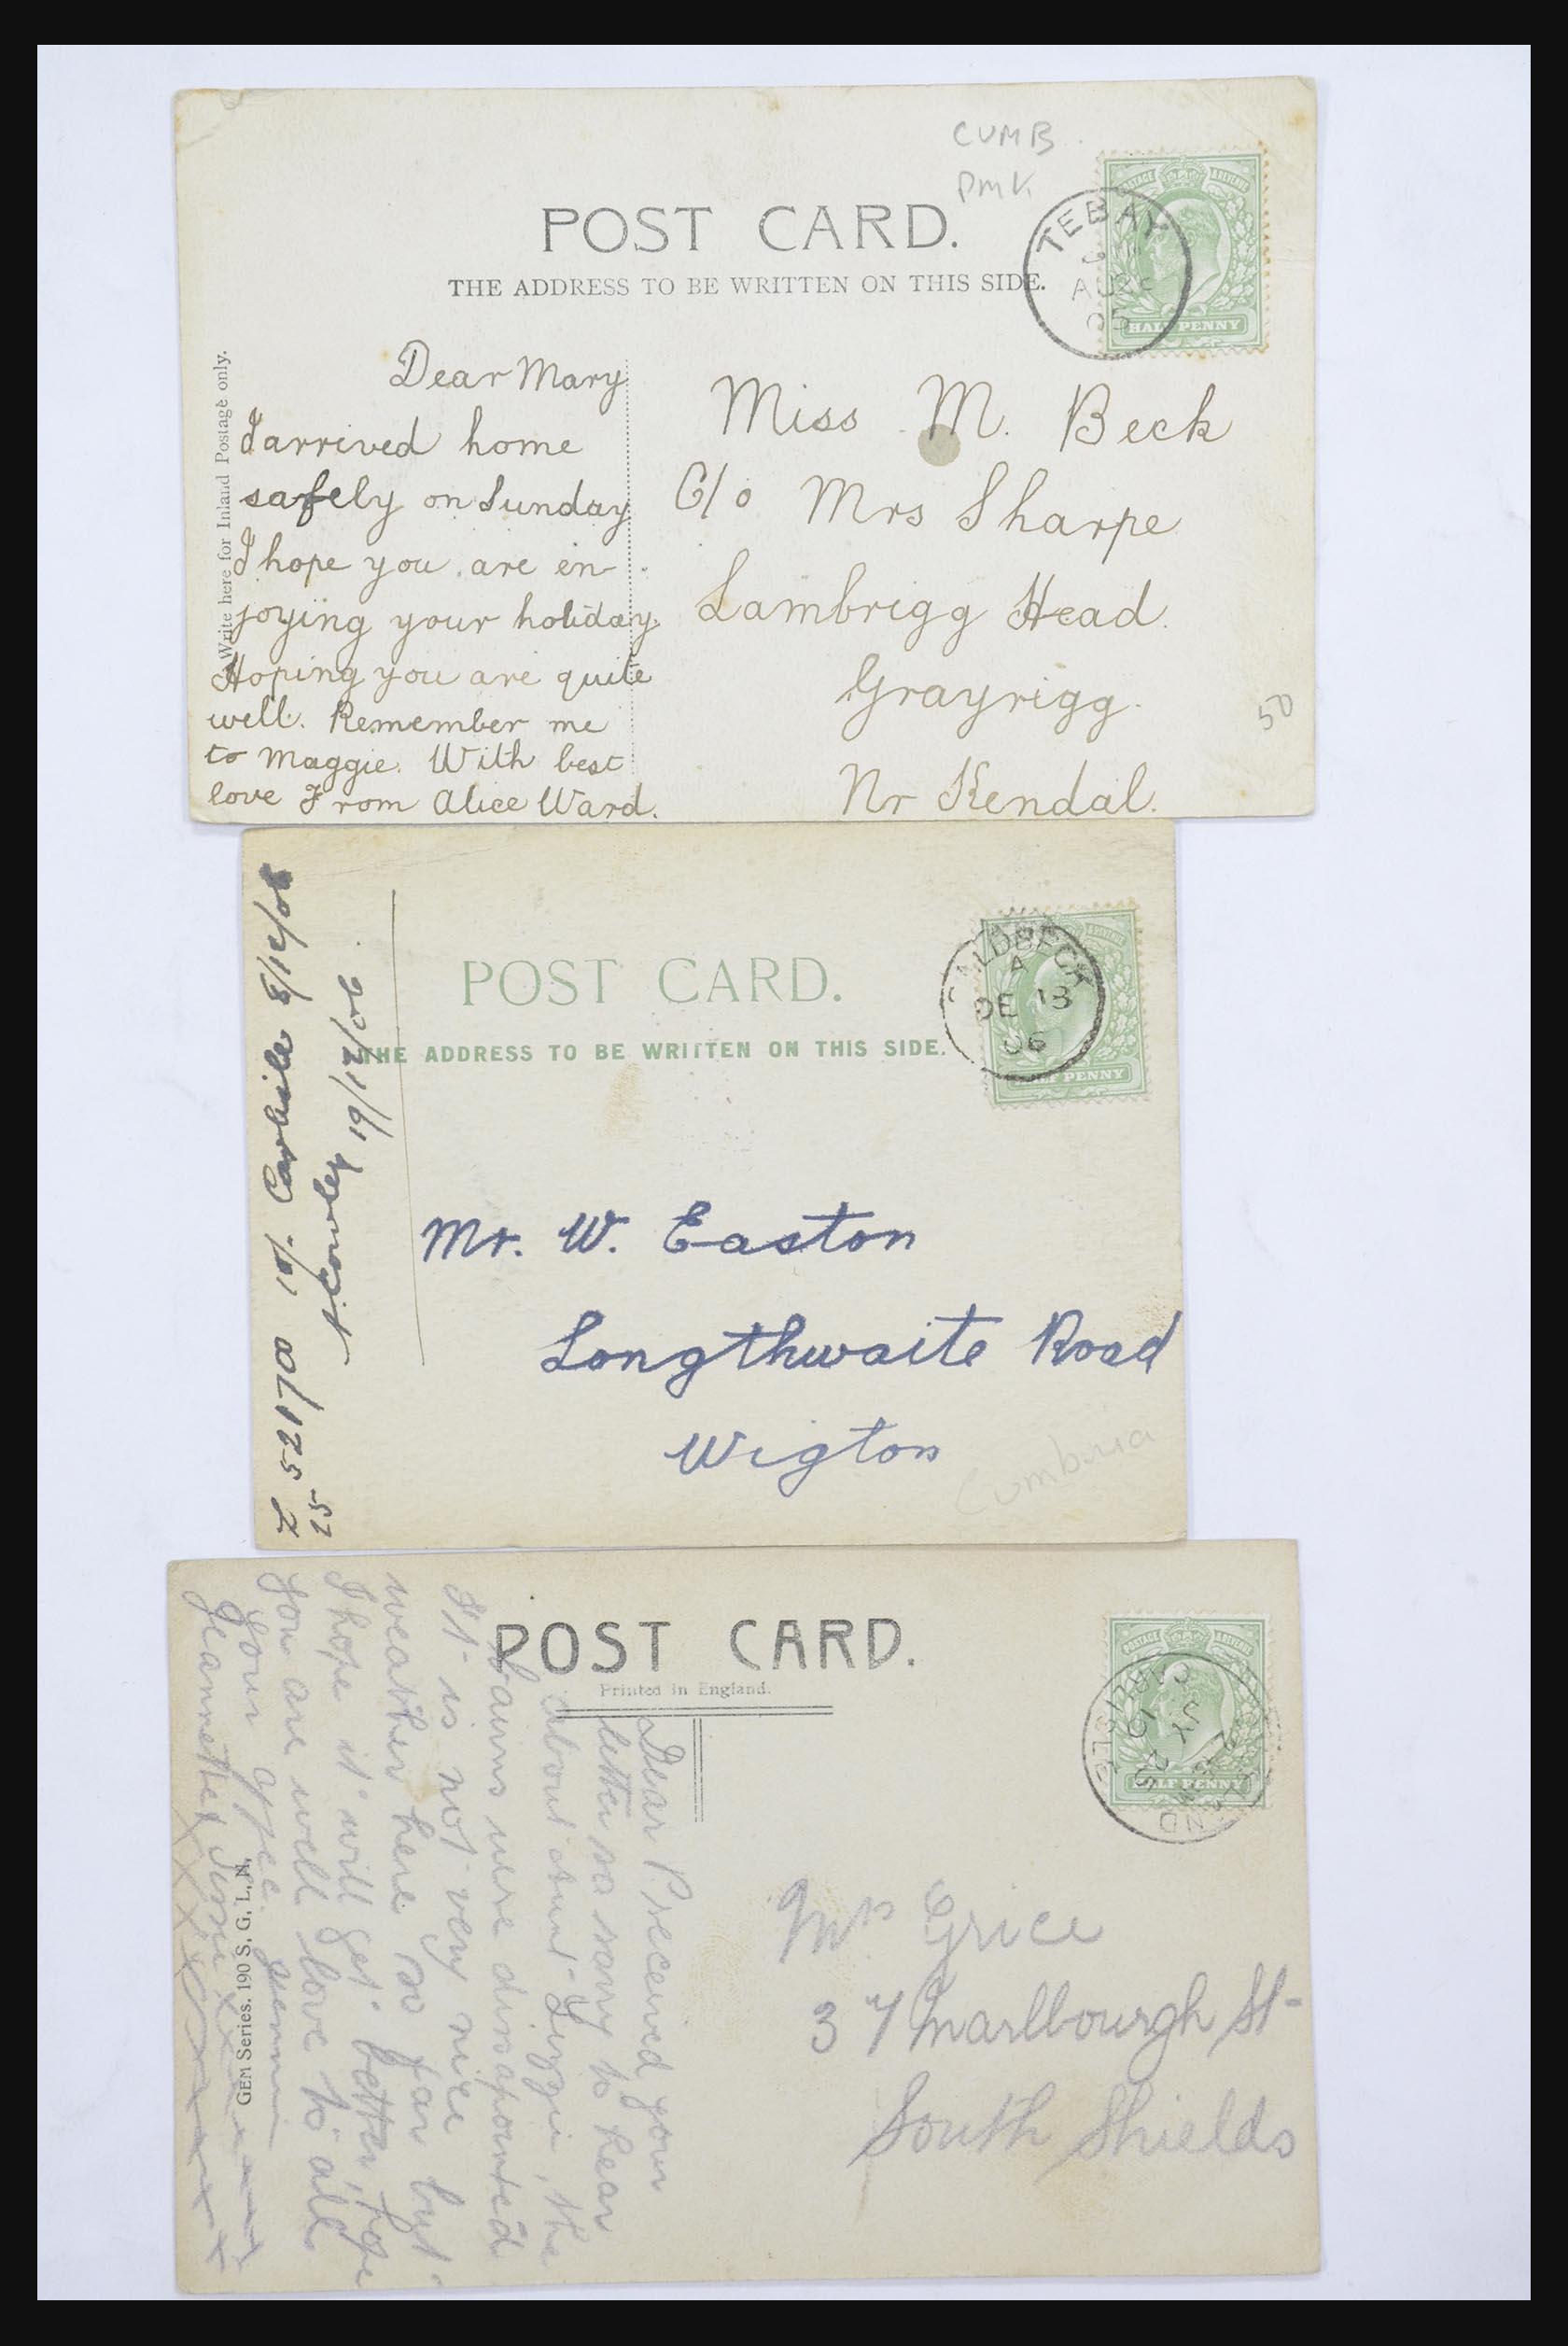 CUMB
PMK
POST CARD.
THE ADDRESS TO BE WRITTEN ON THIS SIDE.
POSTAGE & REVENUE
HALF PENNY
TEBAY
AU
05
Write here for Inland Postage only.
Dear Mary
I arrived home
safely on Sunday
I hope you are en-
joying your holiday.
Hoping you are quite
well. Remember me
to Maggie. With best
love From Alice Ward.
Miss M. Beck
C/o Mrs Sharpe
Lambrigg Head.
Grayrigg.
Nr Kendal.
50
POST CARD.
THE ADDRESS TO BE WRITTEN ON THIS SIDE.
CALDBECK
A
DE 13
06
HALF PENNY
52170 10/- Carlisle 8/12/06
25 A. Cowley 19/12/06
Mr. W. Easton
Longthwaite Road
Wigton
Cumbria
POST CARD.
Printed in England.
POSTAGE & REVENUE
HALF PENNY
CARLISLE
JY 25
10
Dear P. received your
letter so sorry to hear
about Aunt Lizzie, the
bairns were disapointed
It is not very nice
weather here so far but
I hope it will get better, hope
you are well love to all
Your affec.
Jeannette
GEM Series. 190 S. G. L. N.
Mrs Grice
37 Marlbourgh St
South Shields